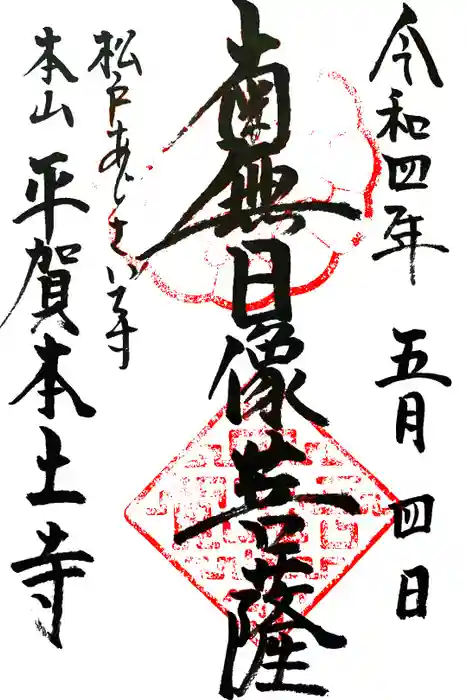 令和四年 五月 四日
南無日像菩薩
松戸あじさい寺
本山 平賀本土寺